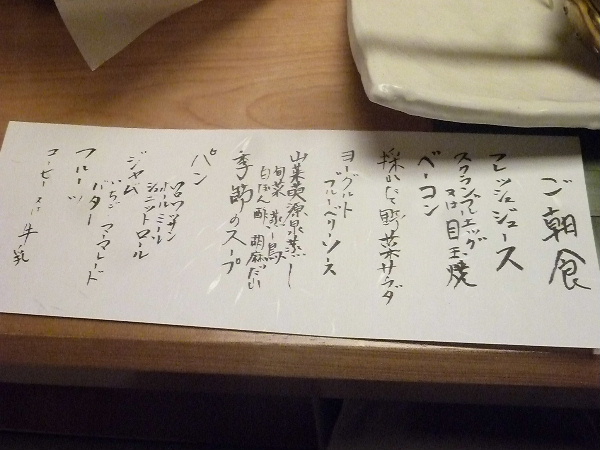 ご朝食
フレッシュジュース
スクランブルエッグ
又は目玉焼
ベーコン
採りたて野菜サラダ
ヨーグルト
ブルーベリーソース
山菜 源泉蒸し
旬菜 蒸し鳥
白ぽん酢 胡麻だれ
季節のスープ
パン
クロワッサン
ホールミール
シュニットロール
ジャム
いちご マーマレード
バター
フルーツ
コーヒー 又は 牛乳